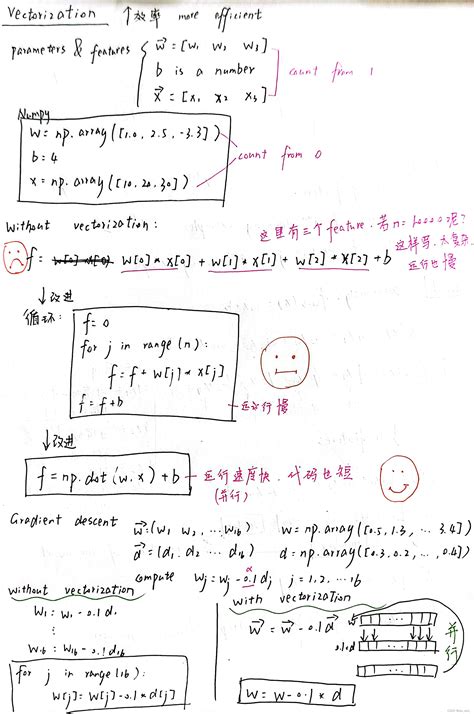 Vectorization ↑效率 more efficient
parameters & features
w⃗ = [w₁ w₂ w₃]
b is a number
x⃗ = [x₁ x₂ x₃]
count from 1
Numpy
w = np.array([1.0, 2.5, -3.3])
b = 4
x = np.array([10, 20, 30])
count from 0
without vectorization:
这里有三个feature,若n=100000呢?
这样写,太复杂
运行也慢
f = w[0]*x[0] + w[1]*x[1] + w[2]*x[2] + b
↓改进
循环:
f = 0
for j in range(n):
f = f + w[j]*x[j]
f = f + b
运行慢
↓改进
f = np.dot(w,x) + b
运行速度快,代码也短
(并行)
Gradient descent
w⃗ = (w₁ w₂ ... w₁₆) w = np.array([0.5, 1.3, ... 3.4])
d⃗ = (d₁ d₂ ... d₁₆) d = np.array([0.3, 0.2, ..., 0.4])
α
compute wⱼ = wⱼ - 0.1dⱼ j = 1, 2, ... 16
without vectorization
w₁ = w₁ - 0.1d₁
⋮
w₁₆ = w₁₆ - 0.1d₁₆
for j in range(16):
w[j] = w[j] - 0.1*d[j]
with vectorization
w⃗ = w⃗ - 0.1d⃗
w
0.1d
并行
w = w - 0.1*d